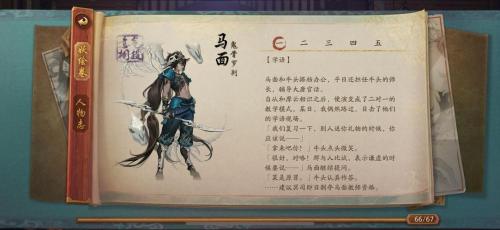 妖绘卷
人物志
马面
鬼骨罗刹
一 二 三 四 五
【学语】
马面和牛头搭档办公，平日还担任牛头的师
长，辅导大唐官话。
自从和摩云相识之后，便演变成了二对一的
教学模式。某日，我偶然路过，目击了他们
的学语现场。
「我们复习一下，别人送你礼物的时候，你
应该说——」
「拿来吧你！」牛头点头微笑。
「很好，对咯！那与人比试，表示谦虚的时
候要说——」马面继续提问。
「菜是原罪。」牛头认真作答。
……建议冥司即日剥夺马面教师资格。
66/67